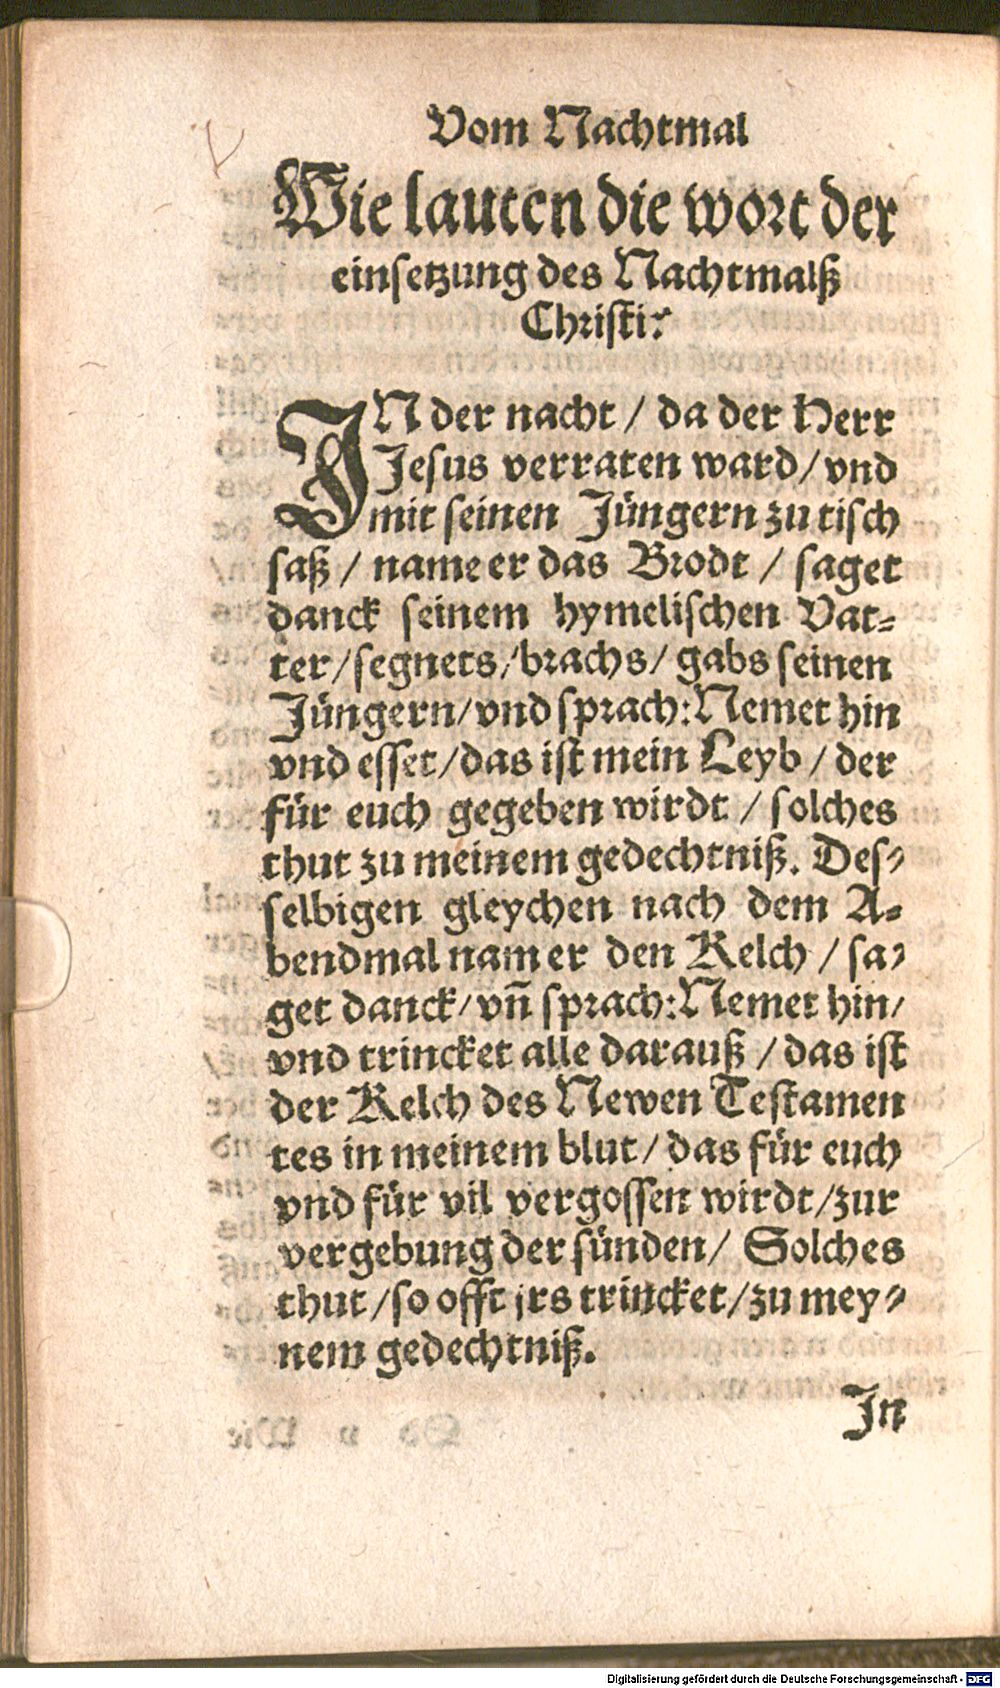 Vom Nachtmal
Wie lauten die wort der
einsetzung des Nachtmalß
Christi?
IN der nacht / da der Herr
Jesus verraten ward / vnd
mit seinen Jüngern zu tisch
saß / name er das Brodt / saget
danck seinem hymelischen Vat-
ter / segnets / brachs / gabs seinen
Jüngern / vnd sprach: Nemet hin
vnd esset / das ist mein Leyb / der
für euch gegeben wirdt / solches
thut zu meinem gedechtniß. Des-
selbigen gleychen nach dem A-
bendmal nam er den Kelch / sa-
get danck / vñ sprach: Nemet hin /
vnd trincket alle darauß / das ist
der Kelch des Newen Testamen
tes in meinem blut / das für euch
vnd für vil vergossen wirdt / zur
vergebung der sünden / Solches
thut / so offt jrs trincket / zu mey-
nem gedechtniß.
In
Digitalisierung gefördert durch die Deutsche Forschungsgemeinschaft - DFG